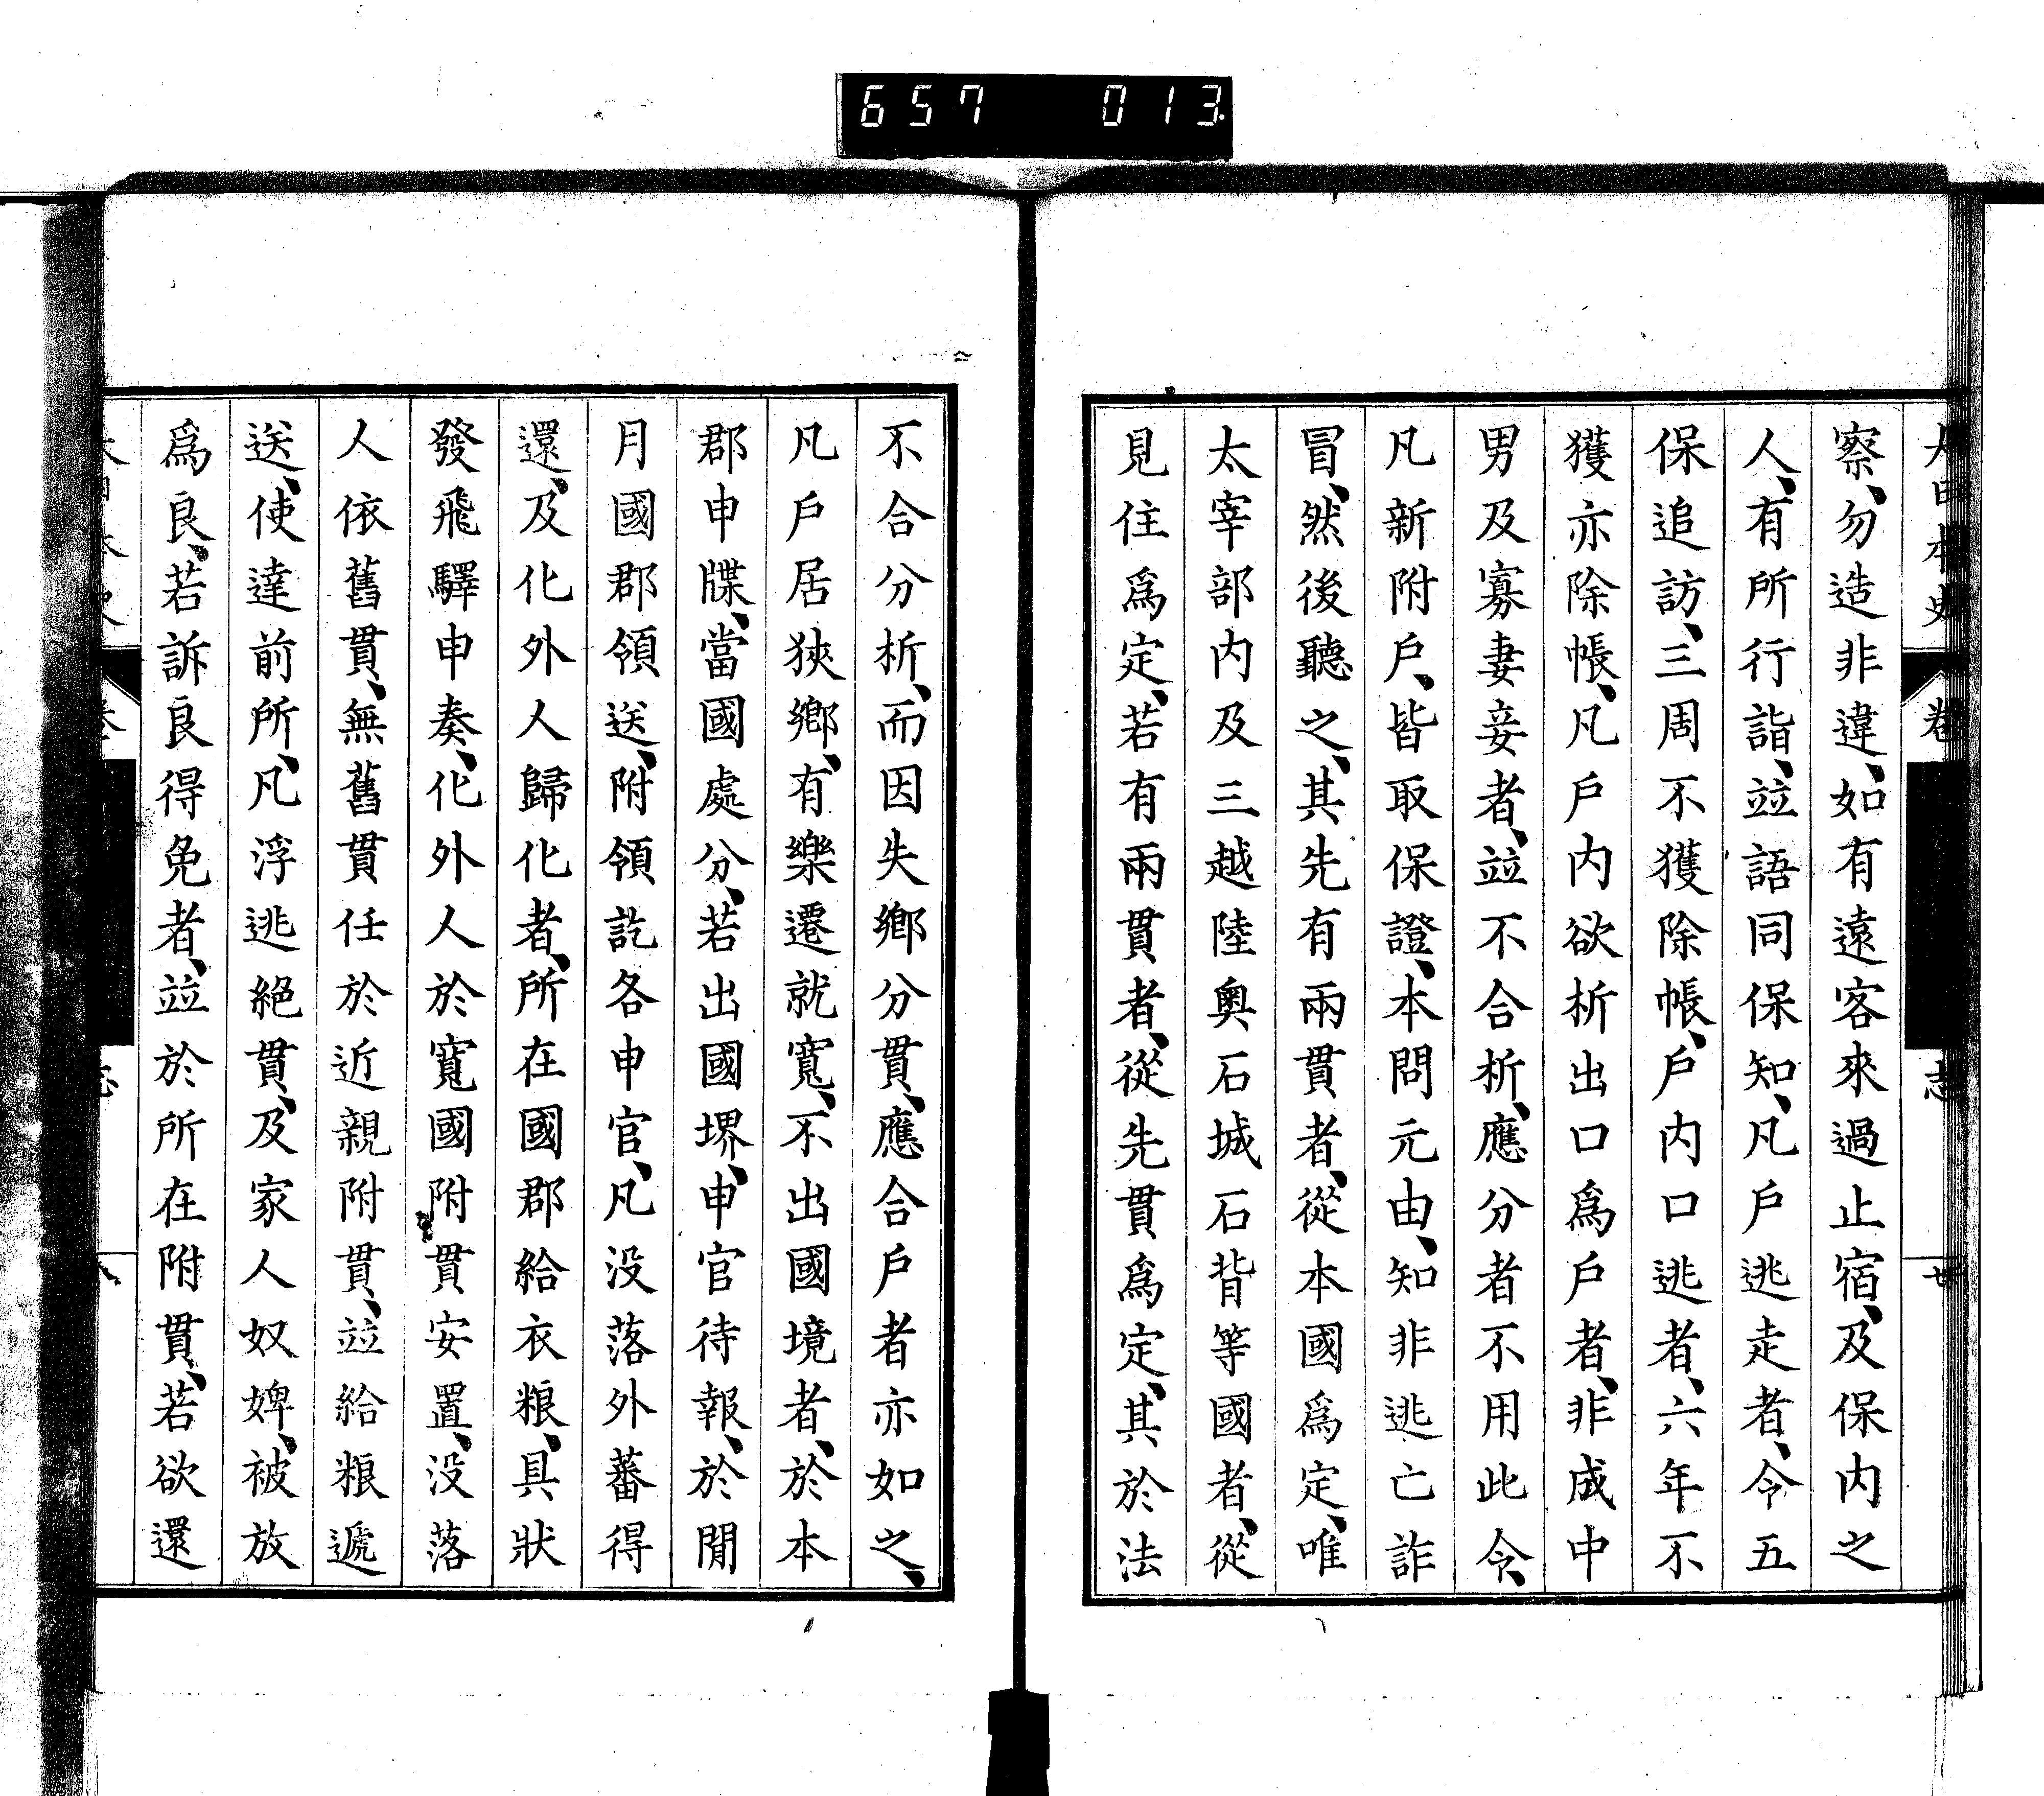 657 013
察、勿造非違、如有遠客來過止宿、及保内之
人、有所行詣、竝語同保知、凡戶逃走者、令五
保追訪、三周不獲除帳、戶内口逃者、六年不
獲亦除帳、凡戶内欲析出口爲戶者、非成中
男及寡妻妾者、竝不合析、應分者不用此令、
凡新附戶、皆取保證、本問元由、知非逃亡詐
冒、然後聽之、其先有兩貫者、從本國爲定、唯
太宰部内及三越陸奧石城石背等國者、從
見住爲定、若有兩貫者、從先貫爲定、其於法
不合分析、而因失鄉分貫、應合戶者亦如之、
凡戶居狹鄉、有樂遷就寬、不出國境者、於本
郡申牒、當國處分、若出國堺、申官待報、於閒
月國郡領送、附領訖各申官、凡沒落外蕃得
還、及化外人歸化者、所在國郡給衣粮、具狀
發飛驛申奏、化外人於寬國附貫安置、沒落
人依舊貫、無舊貫任於近親附貫、竝給粮遞
送、使達前所、凡浮逃絕貫、及家人奴婢、被放
爲良、若訴良得免者、竝於所在附貫、若欲還